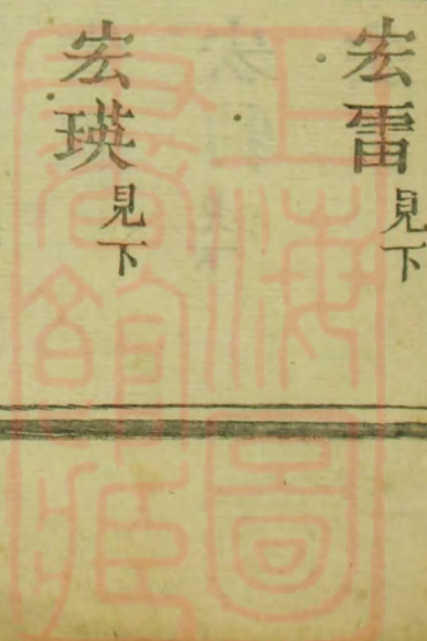 宏雷見下
宏瑛見下
上海圖書館藏